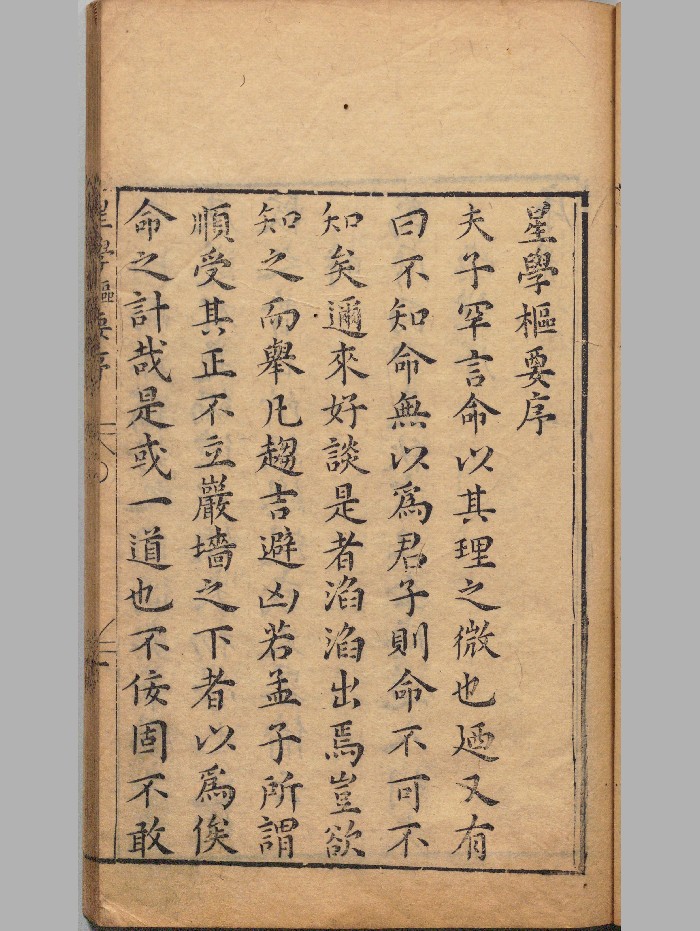 星學樞要序
夫子罕言命以其理之微也廼又有
曰不知命無以爲君子則命不可不
知矣邇來好談是者滔滔出焉豈欲
知之而舉凡趨吉避凶若孟子所謂
順受其正不立巖墻之下者以爲俟
命之計哉是或一道也不佞固不敢
星學樞要序